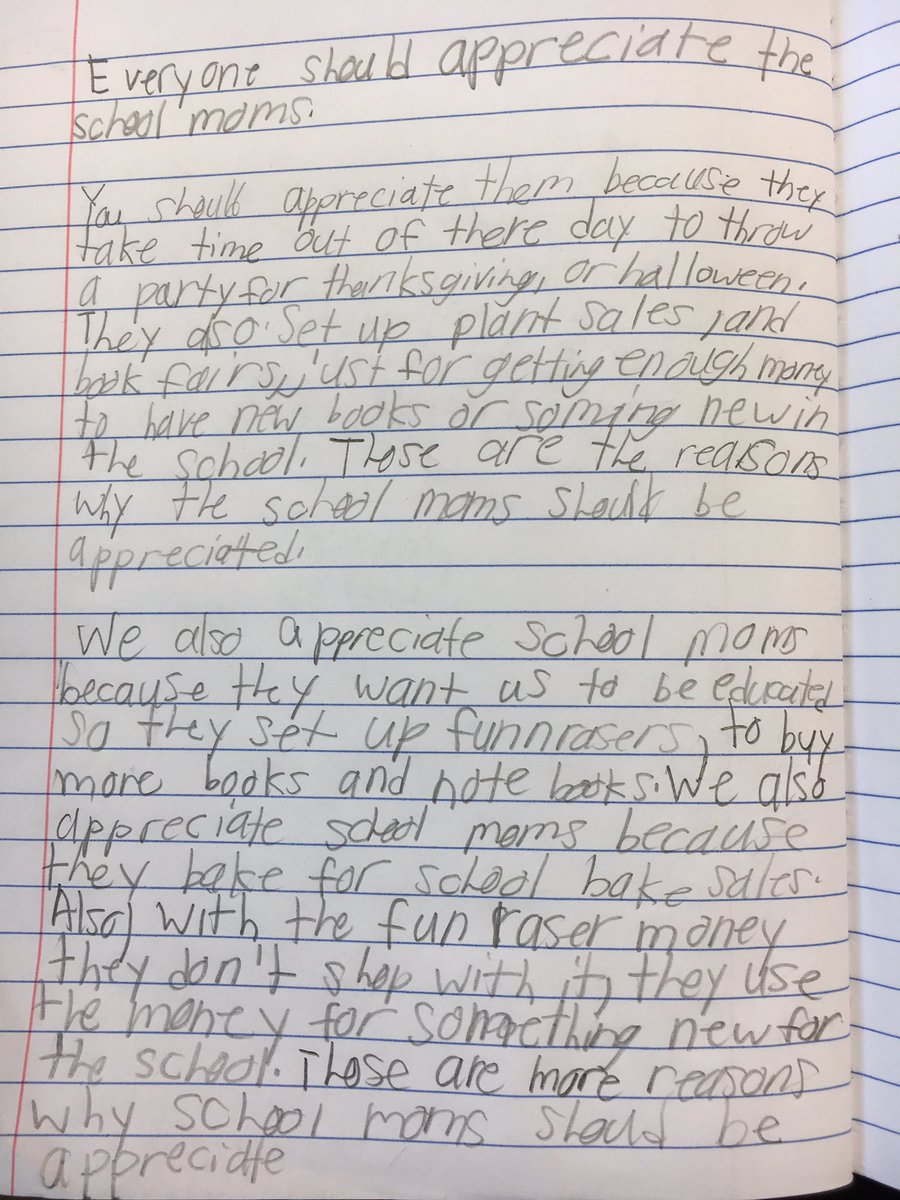 Everyone should appreciate the
school moms.
You should appreciate them because they
take time out of there day to throw
a party for thanksgiving, or halloween.
They also set up plant sales, and
book fairs, just for getting enough money
to have new books or soming new in
the school. Those are the reasons
why the school moms should be
appreciated.
We also appreciate school moms
because they want us to be educated
so they set up funnrasers, to buy
more books and note books. We also
appreciate school moms because
they bake for school bake sales.
Also, with the fun raser money
they don't shop with it, they use
the money for something new for
the school. Those are more reasons
why school moms should be
appreciate